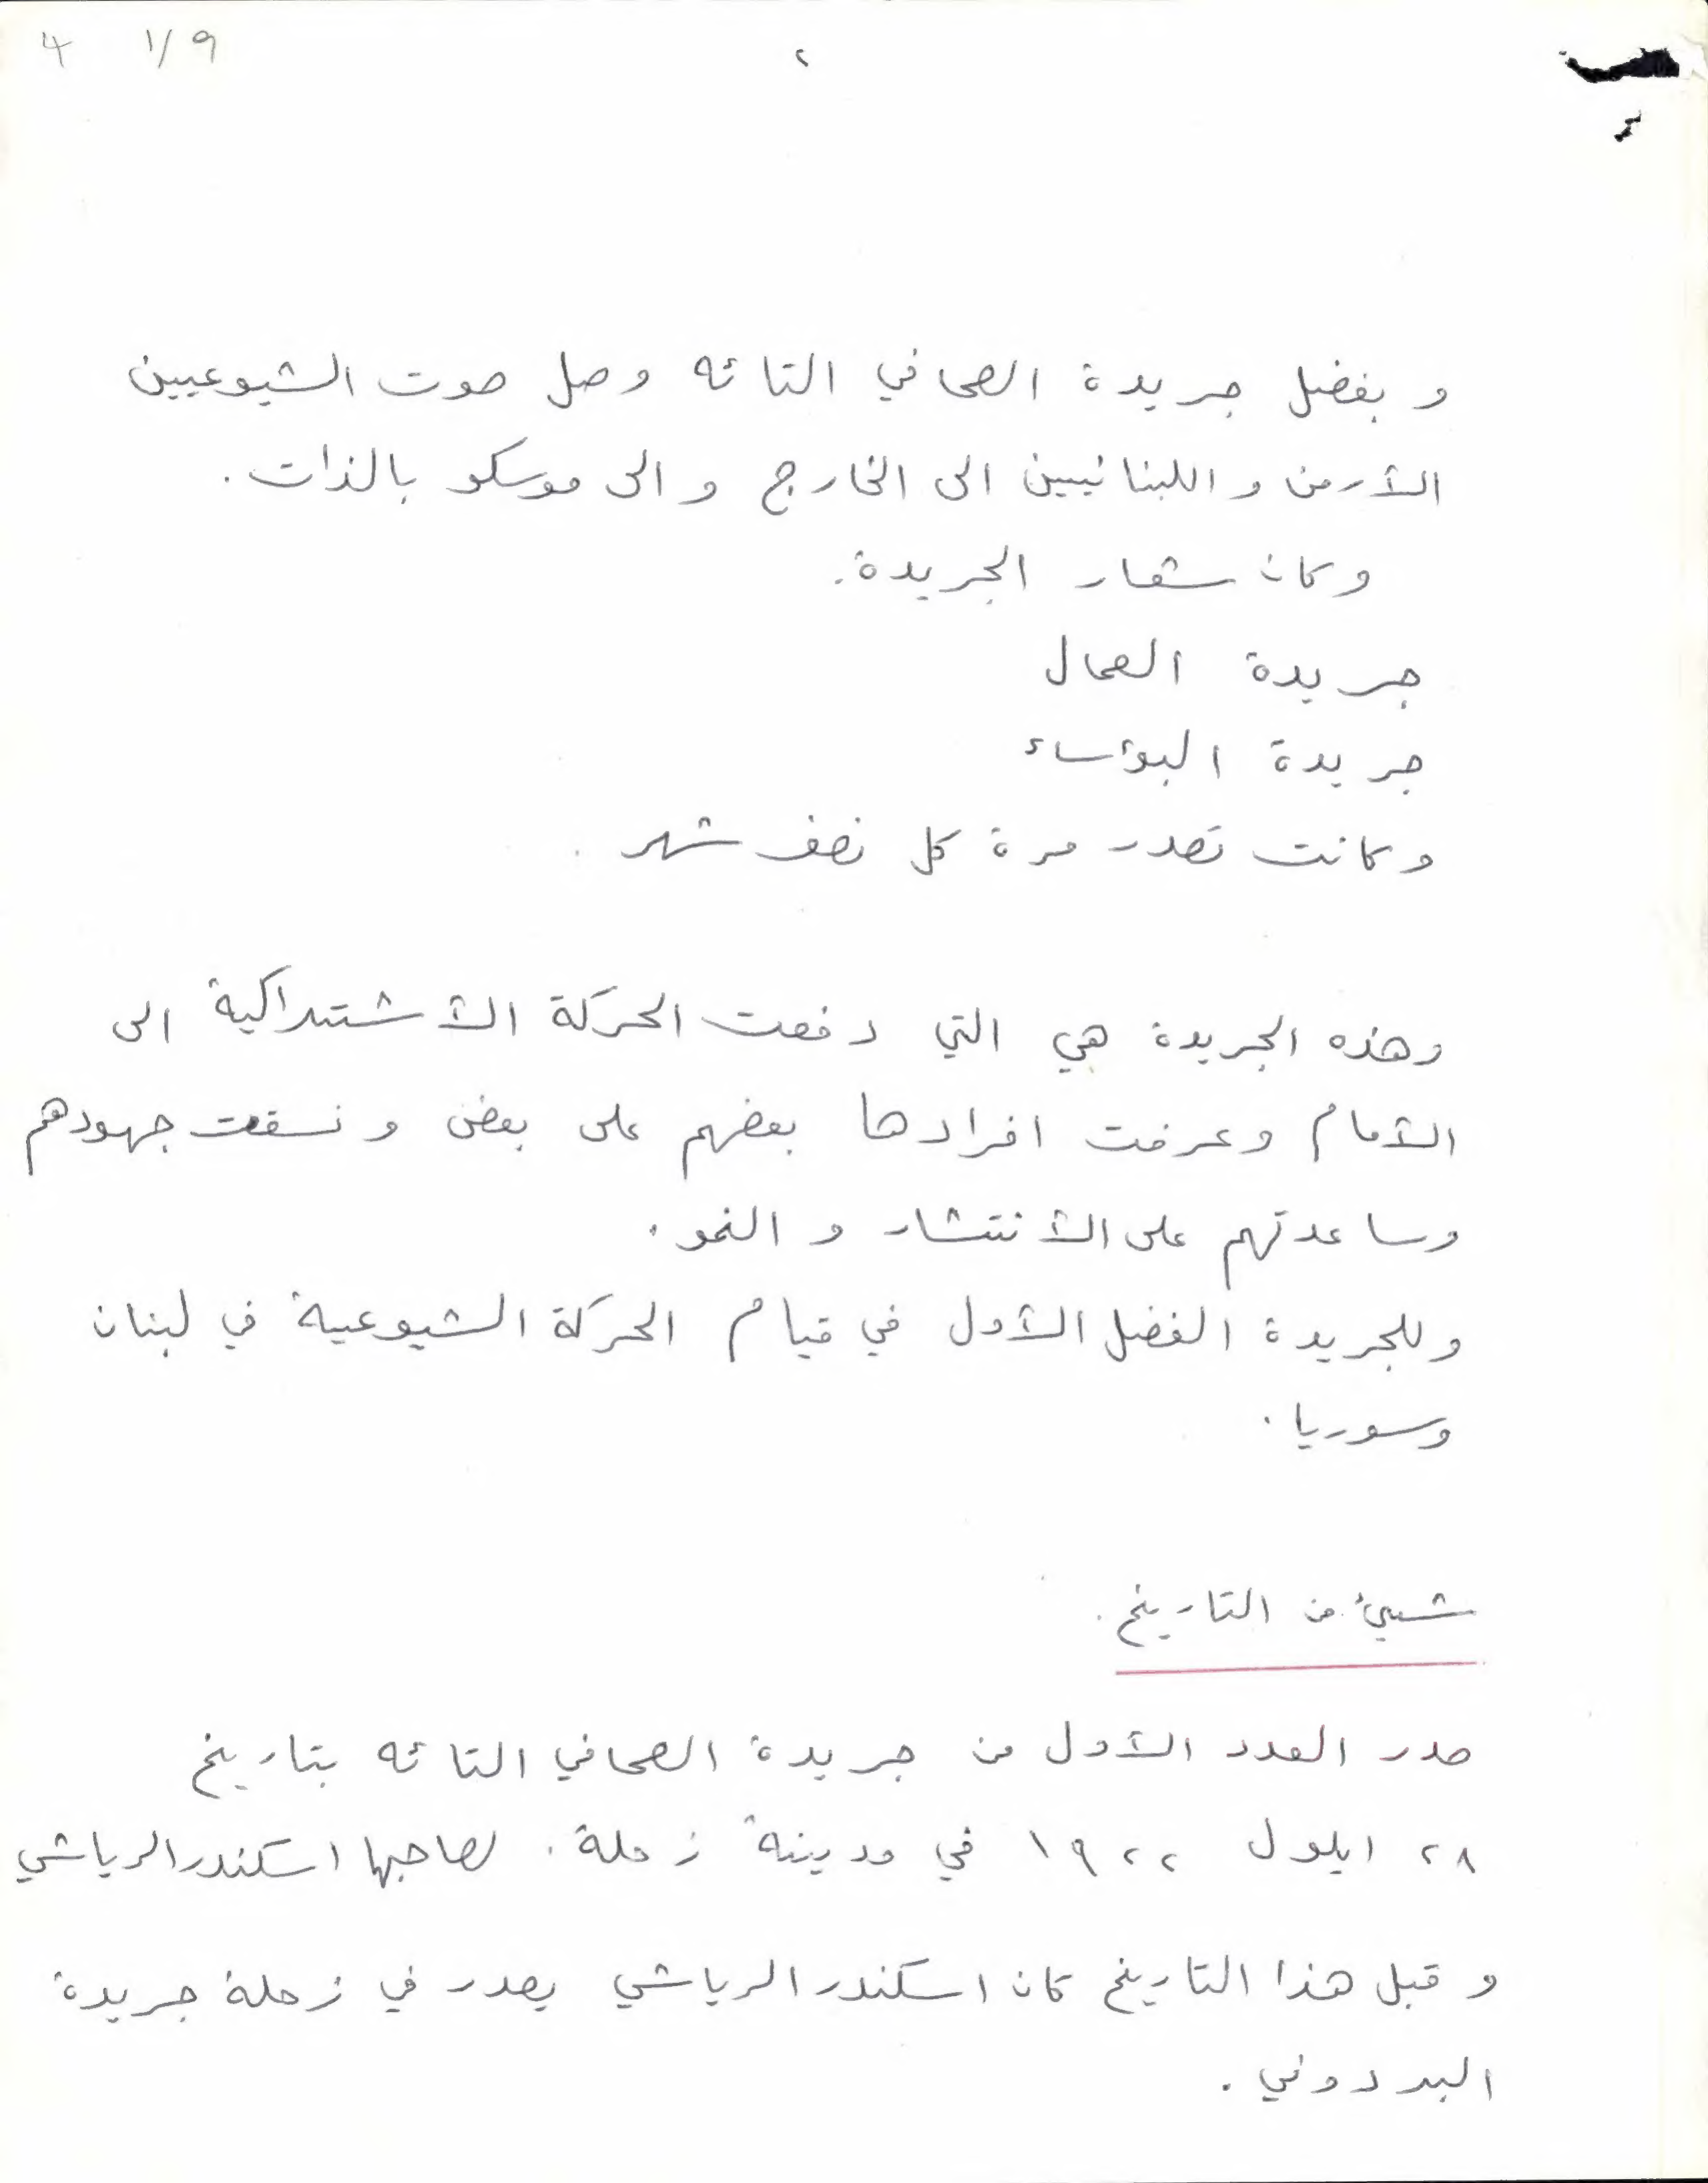 4 1/9
٢
وبفضل جريدة الصحافي التائه وصل صوت الشيوعيين
الأرمن واللبنانيين الى الخارج والى موسكو بالذات .
وكان شعار الجريدة .
جريدة العمال
جريدة البؤساء
وكانت تصدر مرة كل نصف شهر .
وهذه الجريدة هي التي دفعت الحركة الأشتراكية الى
الأمام وعرفت افرادها بعضهم على بعض ونسقت جهودهم
وساعدتهم على الأنتشار والنمو .
وللجريدة الفضل الأول في قيام الحركة الشيوعية في لبنان
وسوريا .
شيئ من التاريخ .
صدر العدد الأول من جريدة الصحافي التائه بتاريخ
٢٨ ايلول ١٩٢٢ في مدينة زحلة . لصاحبها اسكندر الرياشي
وقبل هذا التاريخ كان اسكندر الرياشي يصدر في زحلة جريدة
البردوني .